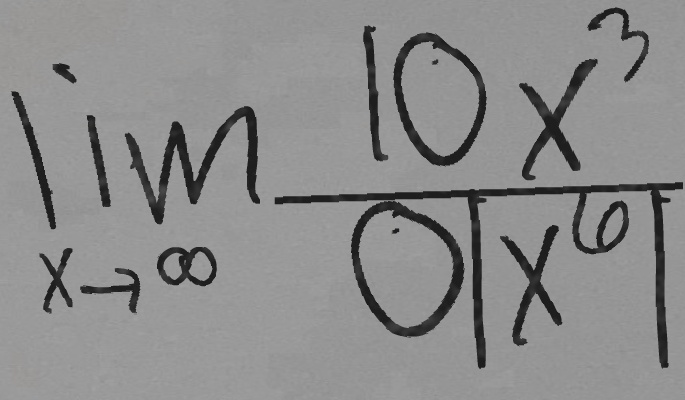 lim 10x³
x→∞ 0|x⁶|